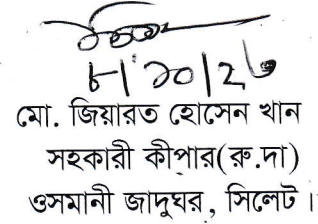 ৮|১০|২৩
মো. জিয়ারত হোসেন খান
সহকারী কীপার(রু.দা)
ওসমানী জাদুঘর, সিলেট।